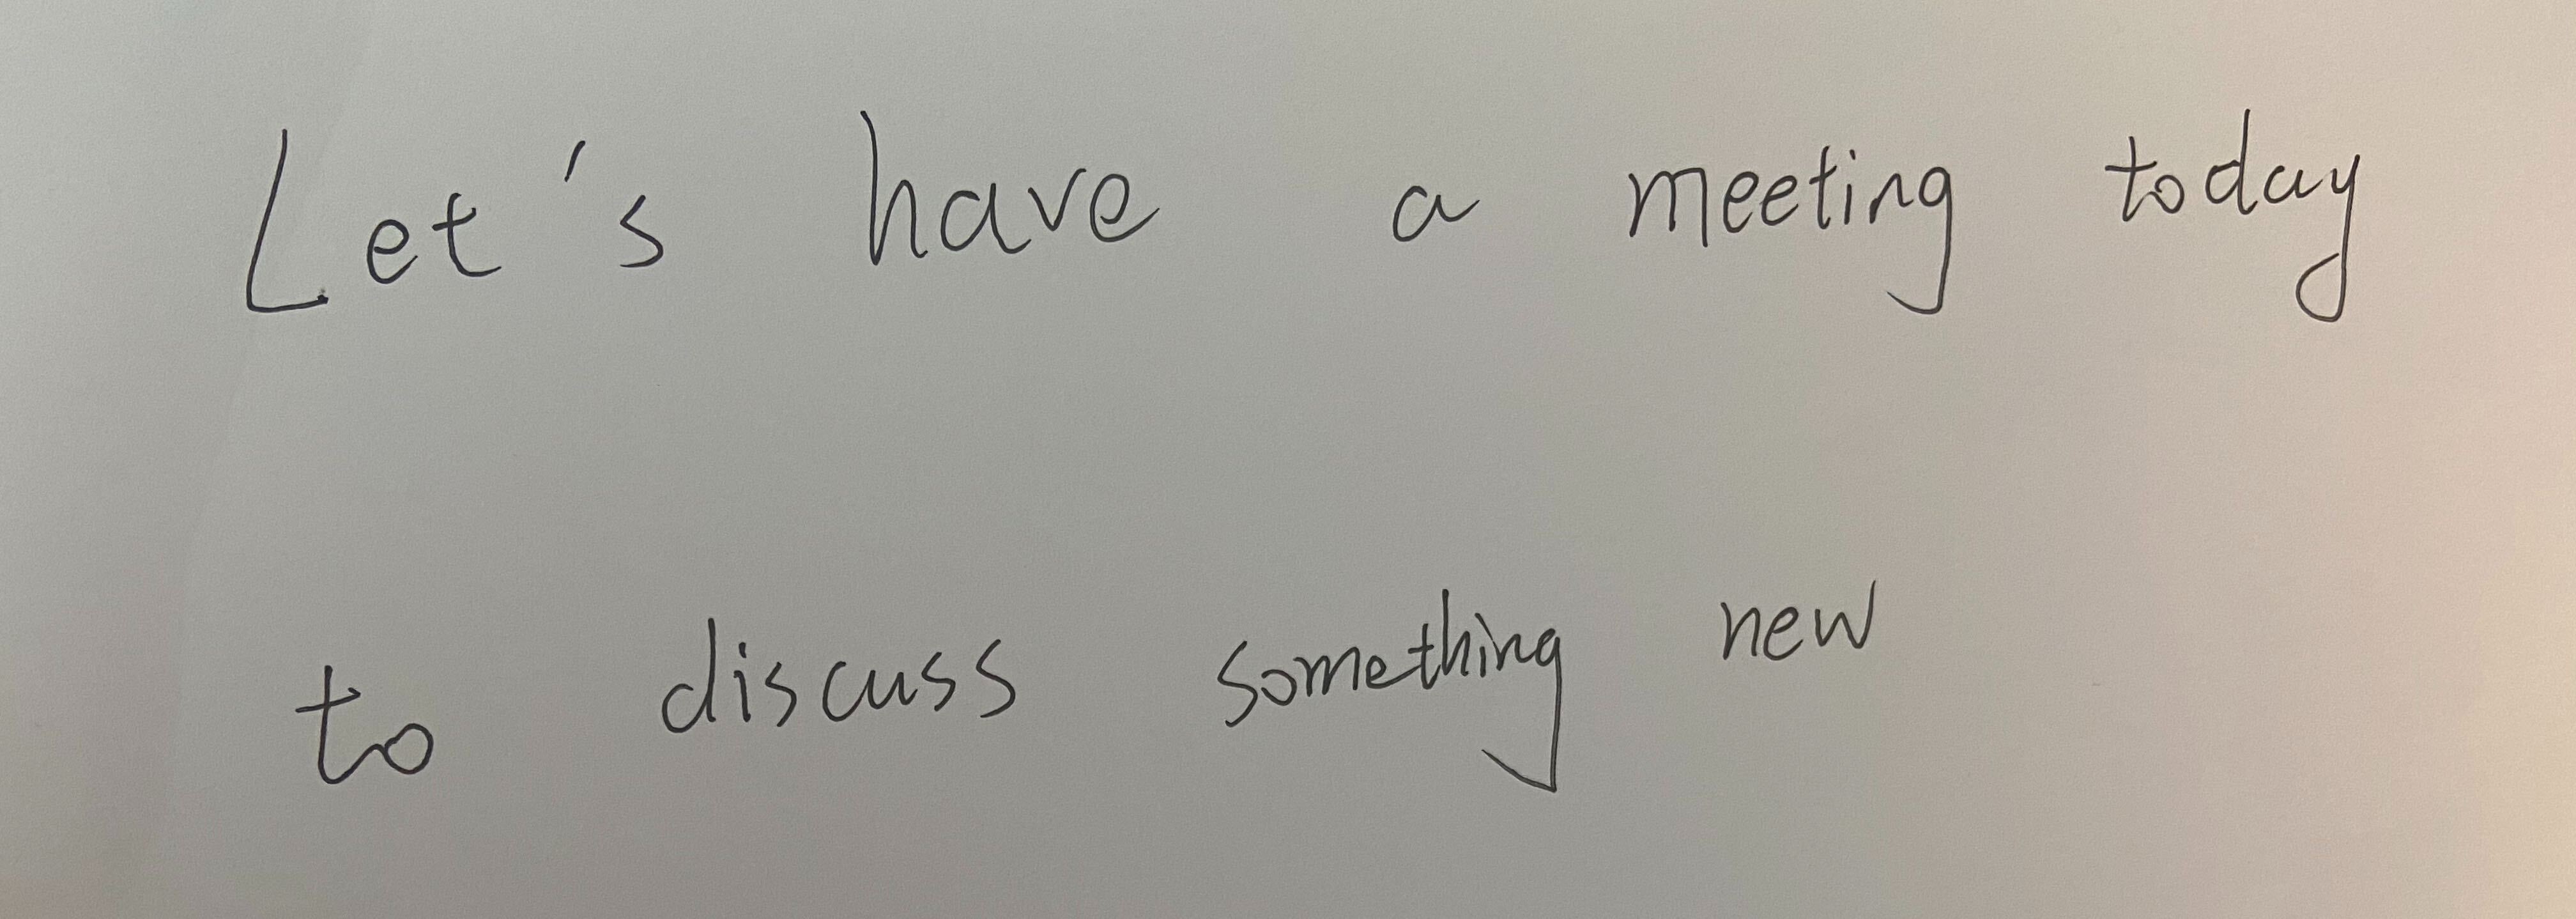 Let's have a meeting today
to discuss something new